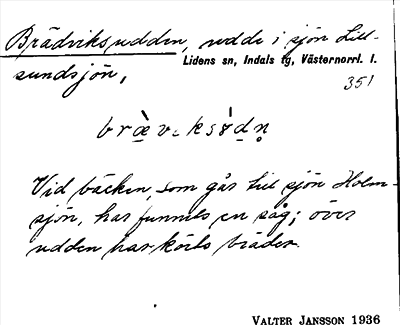 Brädviksudden, udde i sjön Lill-
Lidens sn, Indals tg, Västernorrl. l.
sundsjön,
351
Vid bäcken, som går till sjön Holm-
sjön, har funnits en såg; över
udden har körts bräder.
VALTER JANSSON 1936